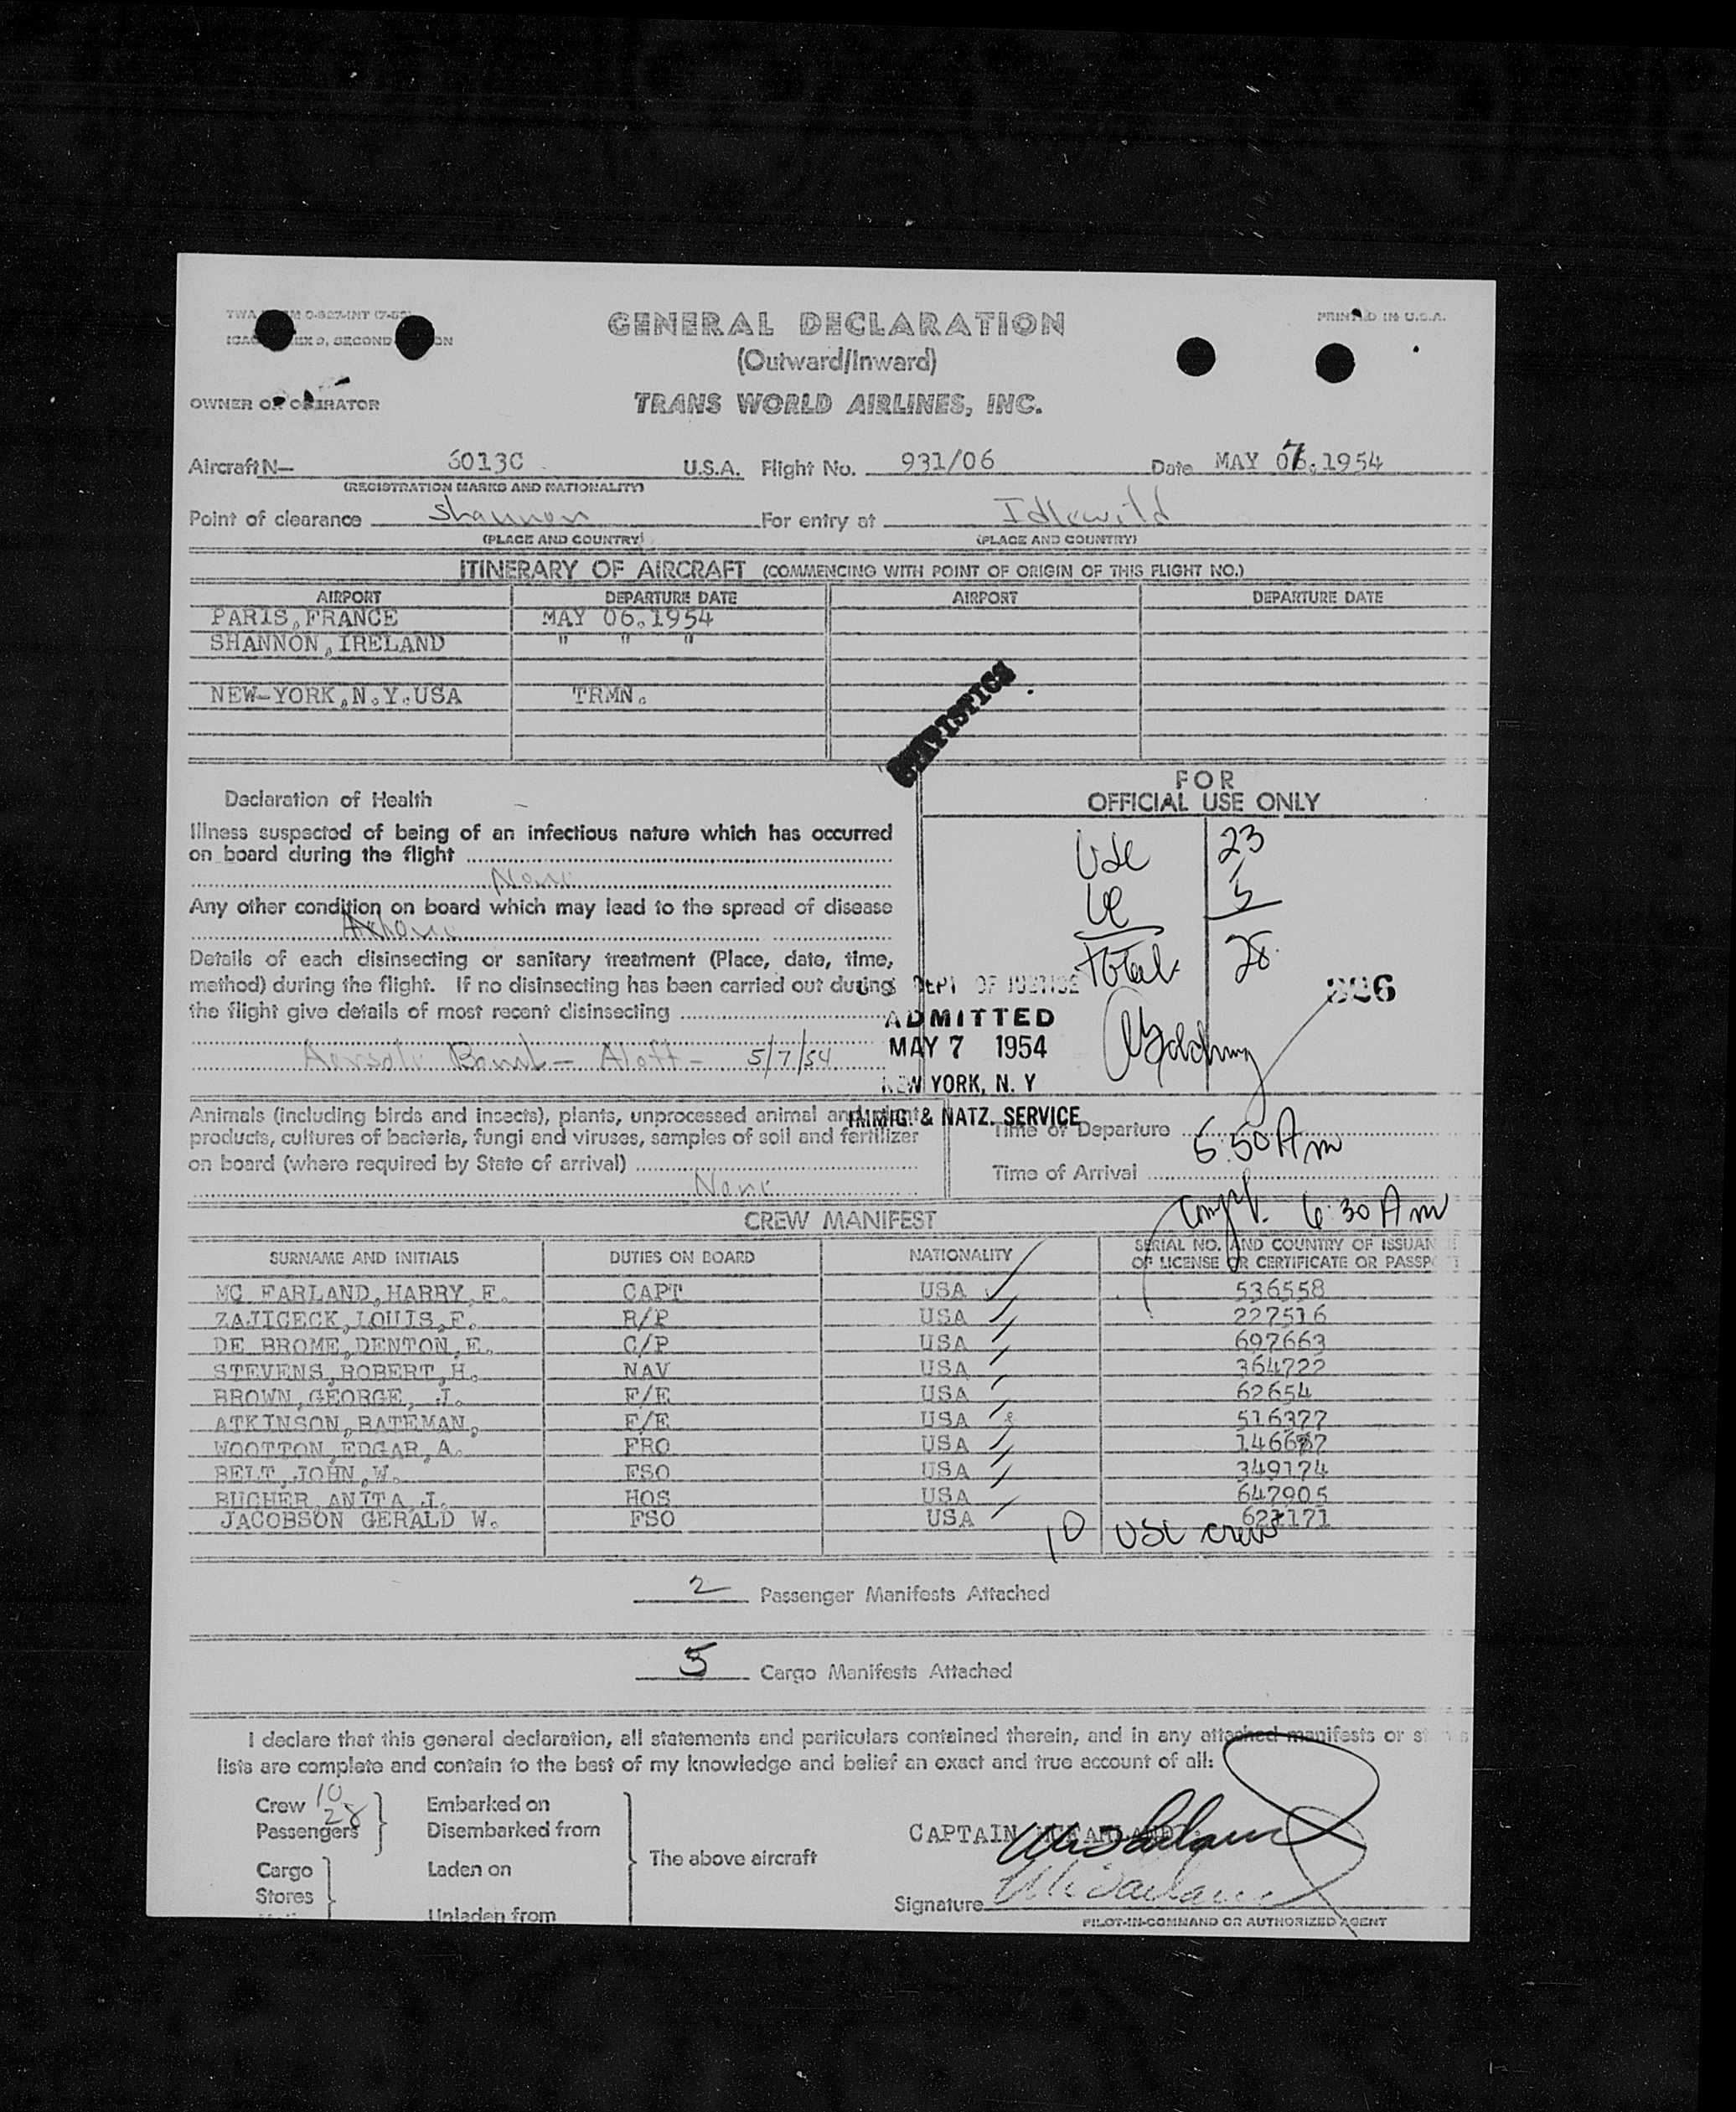 GENERAL DECLARATION
(Outward/Inward)
PRINTED IN U.S.A.
OWNER OR OPERATOR
TRANS WORLD AIRLINES, INC.
Aircraft N— 6013C U.S.A. Flight No. 931/06 Date MAY 07.1954
(REGISTRATION MARKS AND NATIONALITY)
Point of clearance Shannon For entry at Idlewild
(PLACE AND COUNTRY) (PLACE AND COUNTRY)
ITINERARY OF AIRCRAFT (COMMENCING WITH POINT OF ORIGIN OF THIS FLIGHT NO.)
AIRPORT DEPARTURE DATE AIRPORT DEPARTURE DATE
PARIS,FRANCE MAY 06.1954
SHANNON,IRELAND " " "
NEW-YORK,N.Y.USA TRMN.
STATISTICS
Declaration of Health
FOR
OFFICIAL USE ONLY
Illness suspected of being of an infectious nature which has occurred
on board during the flight
None
Any other condition on board which may lead to the spread of disease
USC 23
5
Total 28
Details of each disinsecting or sanitary treatment (Place, date, time,
method) during the flight. If no disinsecting has been carried out during
the flight give details of most recent disinsecting
Aersole Bomb — Aloft — 5/7/54
DEPT OF JUSTICE
ADMITTED
MAY 7 1954
NEW YORK, N. Y
IMMIG. & NATZ. SERVICE
Animals (including birds and insects), plants, unprocessed animal and plant
products, cultures of bacteria, fungi and viruses, samples of soil and fertilizer
on board (where required by State of arrival)
None
Time of Departure
5:50 Am
Time of Arrival
Compl. 6:30 Am
CREW MANIFEST
SURNAME AND INITIALS DUTIES ON BOARD NATIONALITY SERIAL NO. AND COUNTRY OF ISSUAN
OF LICENSE OR CERTIFICATE OR PASSP
MC FARLAND,HARRY,F. CAPT USA 536558
ZAJICECK,LOUIS,F. R/P USA 227516
DE BROME,DENTON,E. C/P USA 697663
STEVENS,ROBERT,H. NAV USA 364722
BROWN,GEORGE, J. F/E USA 62654
ATKINSON,BATEMAN, F/E USA 516377
WOOTTON,EDGAR,A. FRO USA
BELT,JOHN,W. FSO USA 349174
BUCHER,ANITA,J. HOS USA 647905
JACOBSON GERALD W. FSO USA
10 USC crew
2 Passenger Manifests Attached
5 Cargo Manifests Attached
I declare that this general declaration, all statements and particulars contained therein, and in any attached manifests or
lists are complete and contain to the best of my knowledge and belief an exact and true account of all:
Crew 10
Passengers 28
Embarked on
Disembarked from
Cargo
Stores
Laden on
Unladen from
The above aircraft
CAPTAIN MCFARLAND
Signature
PILOT-IN-COMMAND OR AUTHORIZED AGENT